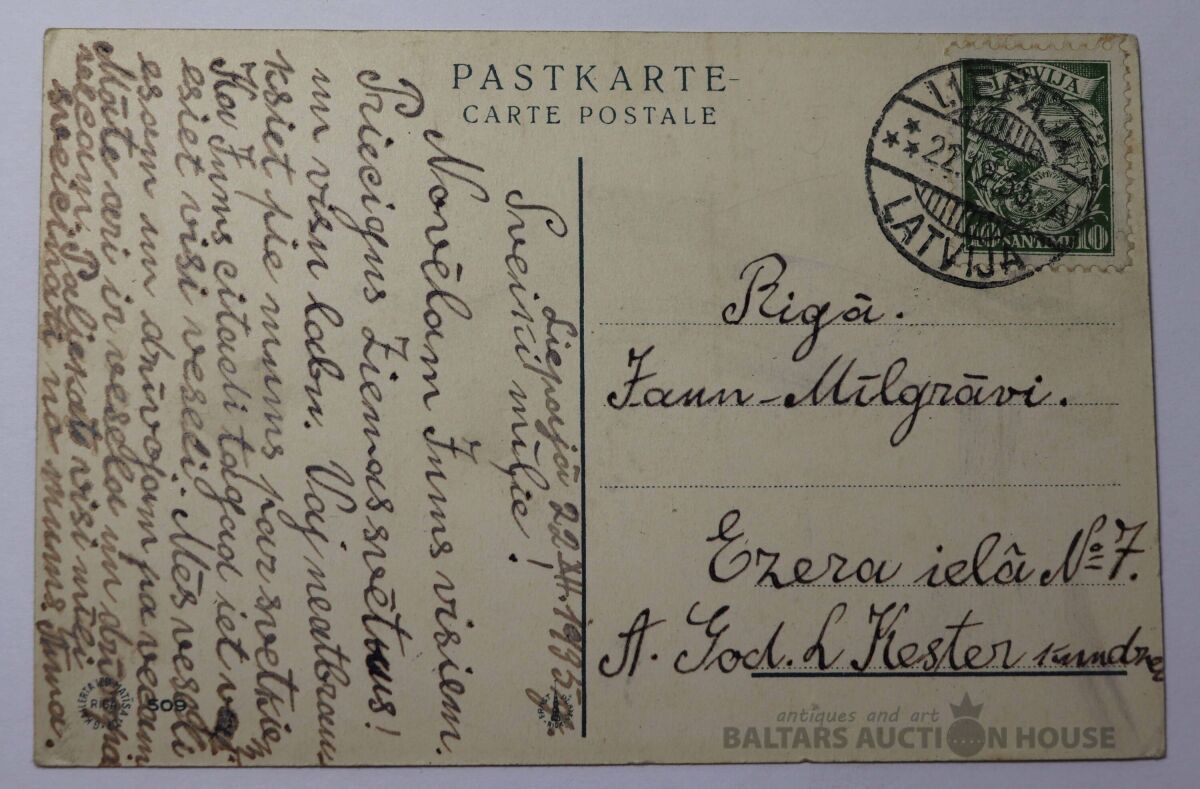 PASTKARTE-
CARTE POSTALE
LATVIJA
10 10
LIEPAJA
22.
LATVIJA
Liepajā 22 XII. 1935.g.
Sveiki mīļie!
Novēlam Jums visiem
Priecigus Ziemassvētkus!
un visu labu. Vaj neatbrau
ksiet pie mums par svetkiem
Kā Jums citadi tagad iet vaj
esiet visi veseli. Mēs veseli
esam un dzīvojam pa vecam
Māte arī ir vesela un dzīvo pa
vecam. Paliekat visi mīļi
sveicinati no mums Anna.
Rigā.
Jaun-Mīlgrāvi.
Ezera ielā No 7.
A. God. L Kester kundzei
RIGA
509
antiques and art
BALTARS AUCTION HOUSE